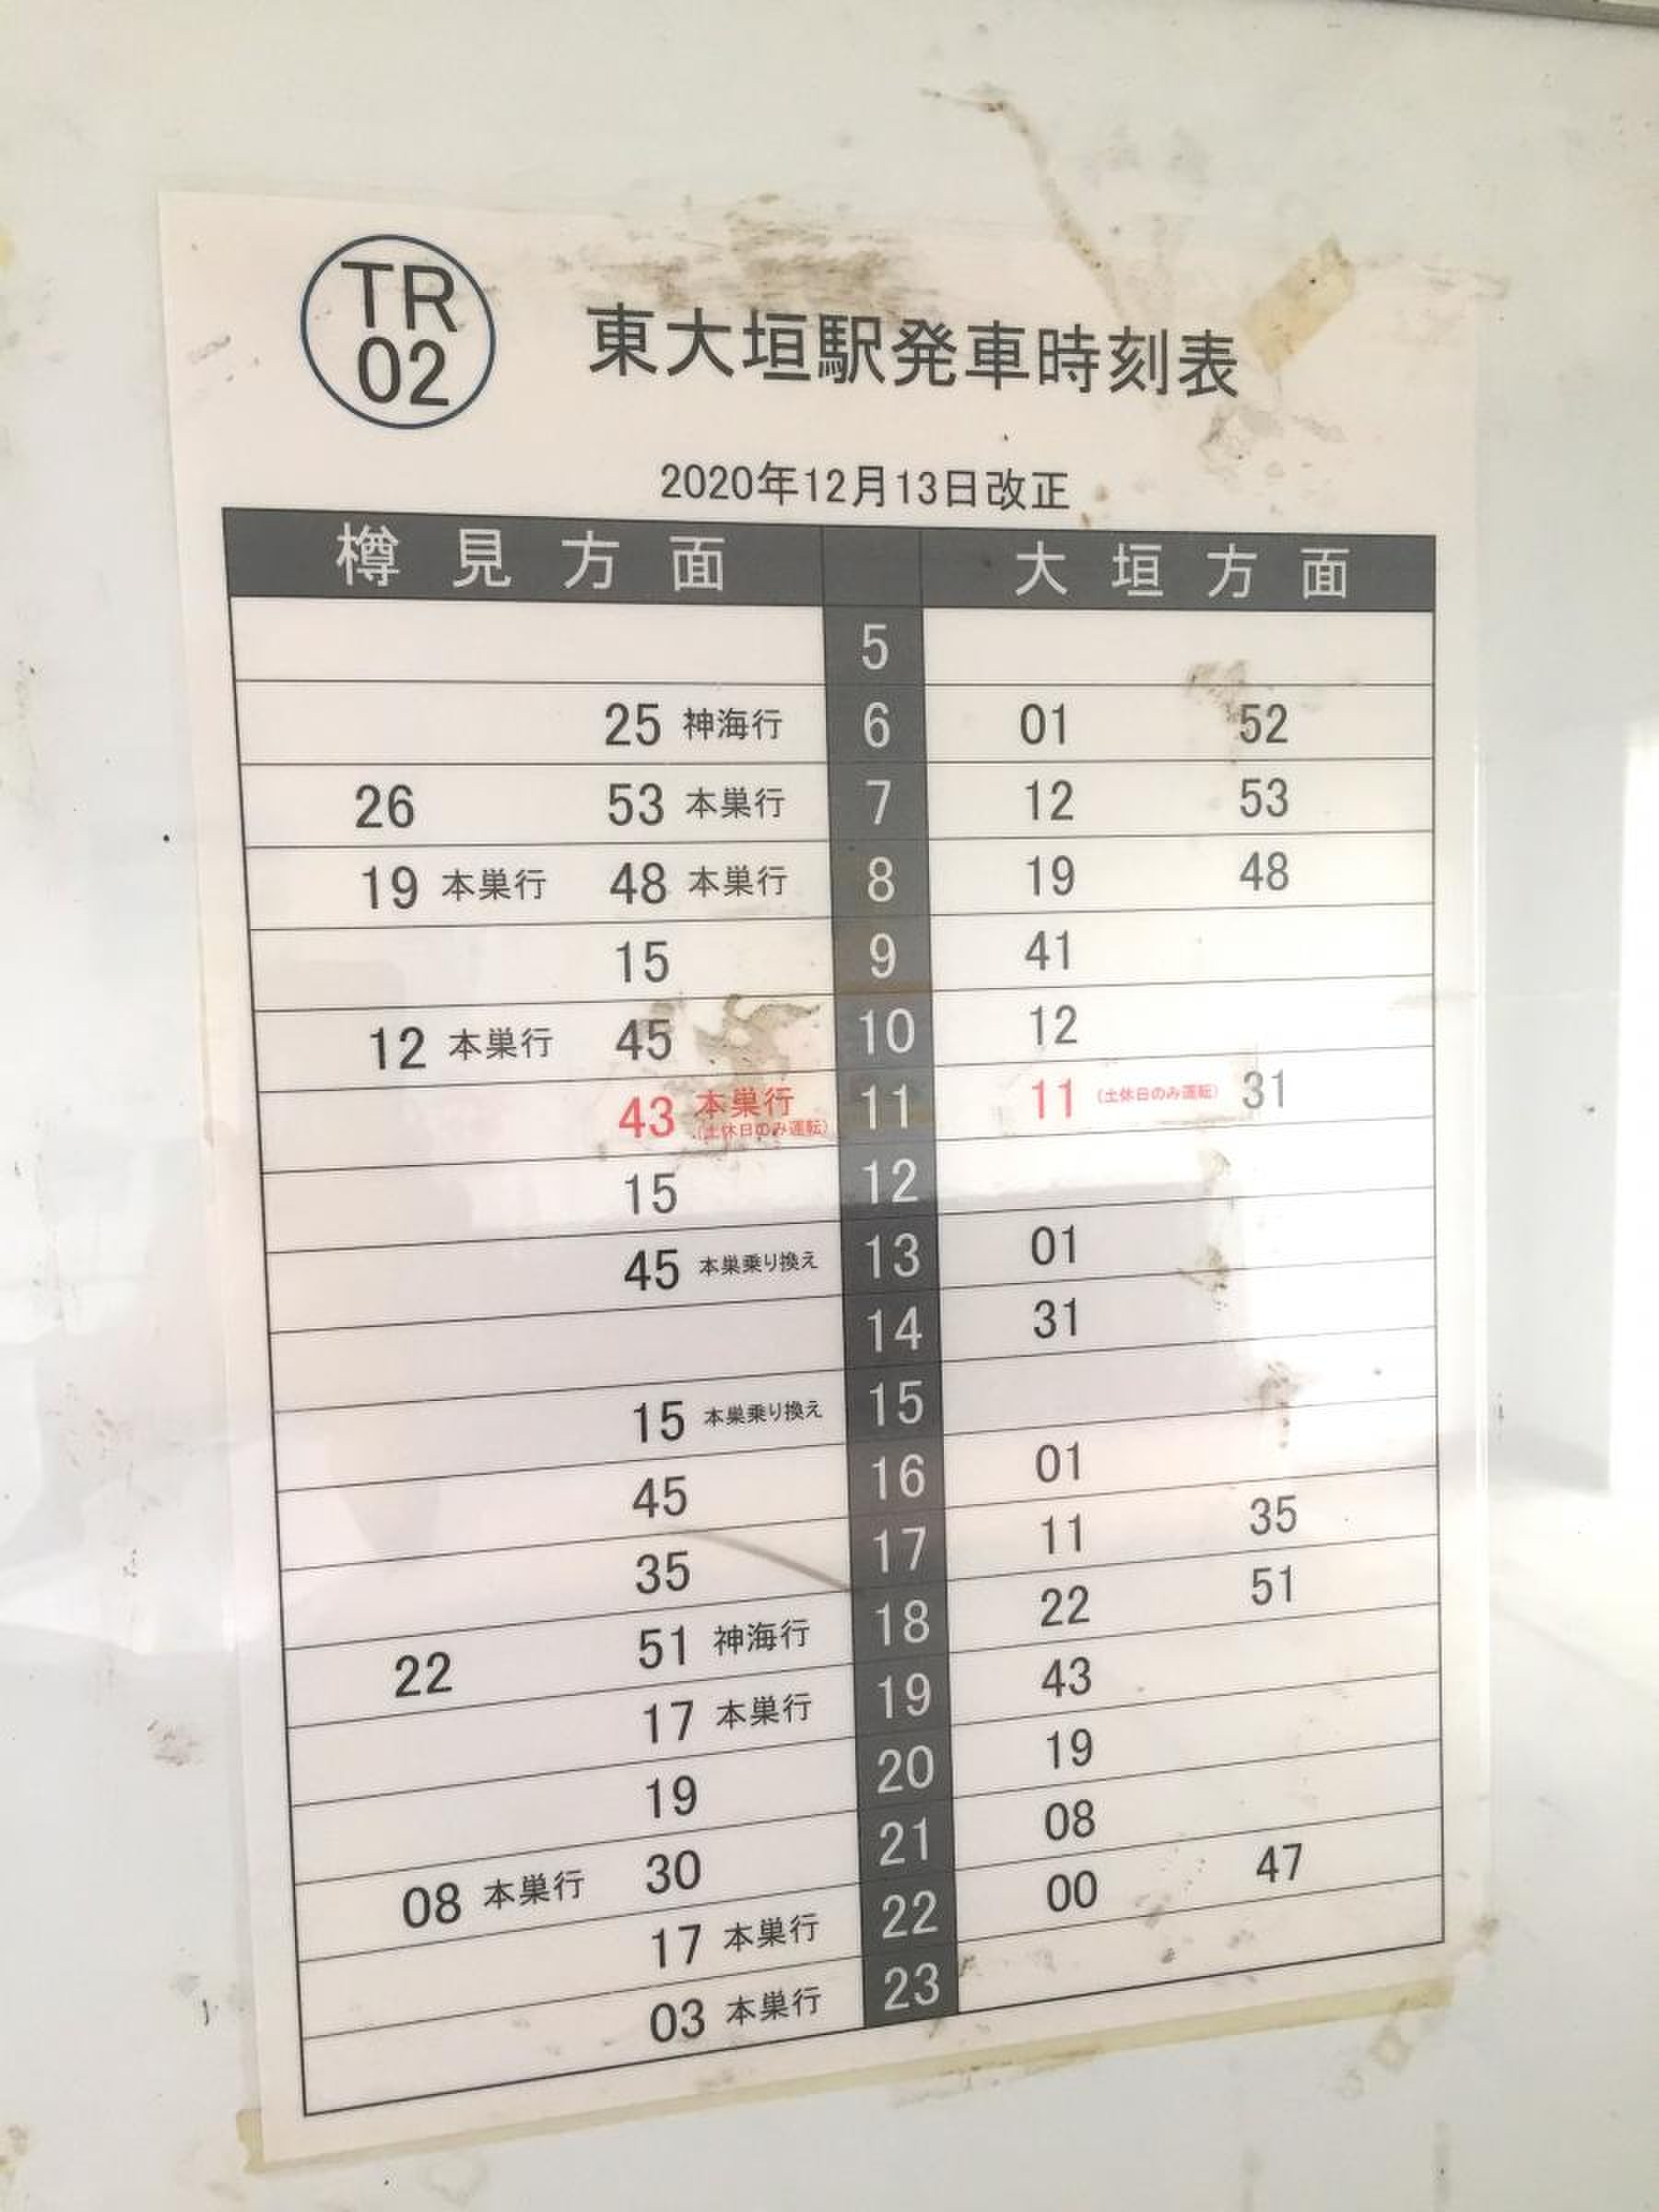 TR
02
東大垣駅発車時刻表
2020年12月13日改正
樽見方面 大垣方面
5
25 神海行 6 01 52
26 53 本巣行 7 12 53
19 本巣行 48 本巣行 8 19 48
15 9 41
12 本巣行 45 10 12
43 本巣行 (土休日のみ運転) 11 11 (土休日のみ運転) 31
15 12
45 本巣乗り換え 13 01
14 31
15 本巣乗り換え 15
45 16 01
35 17 11 35
22 51 神海行 18 22 51
17 本巣行 19 43
19 20 19
08 本巣行 30 21 08
17 本巣行 22 00 47
03 本巣行 23